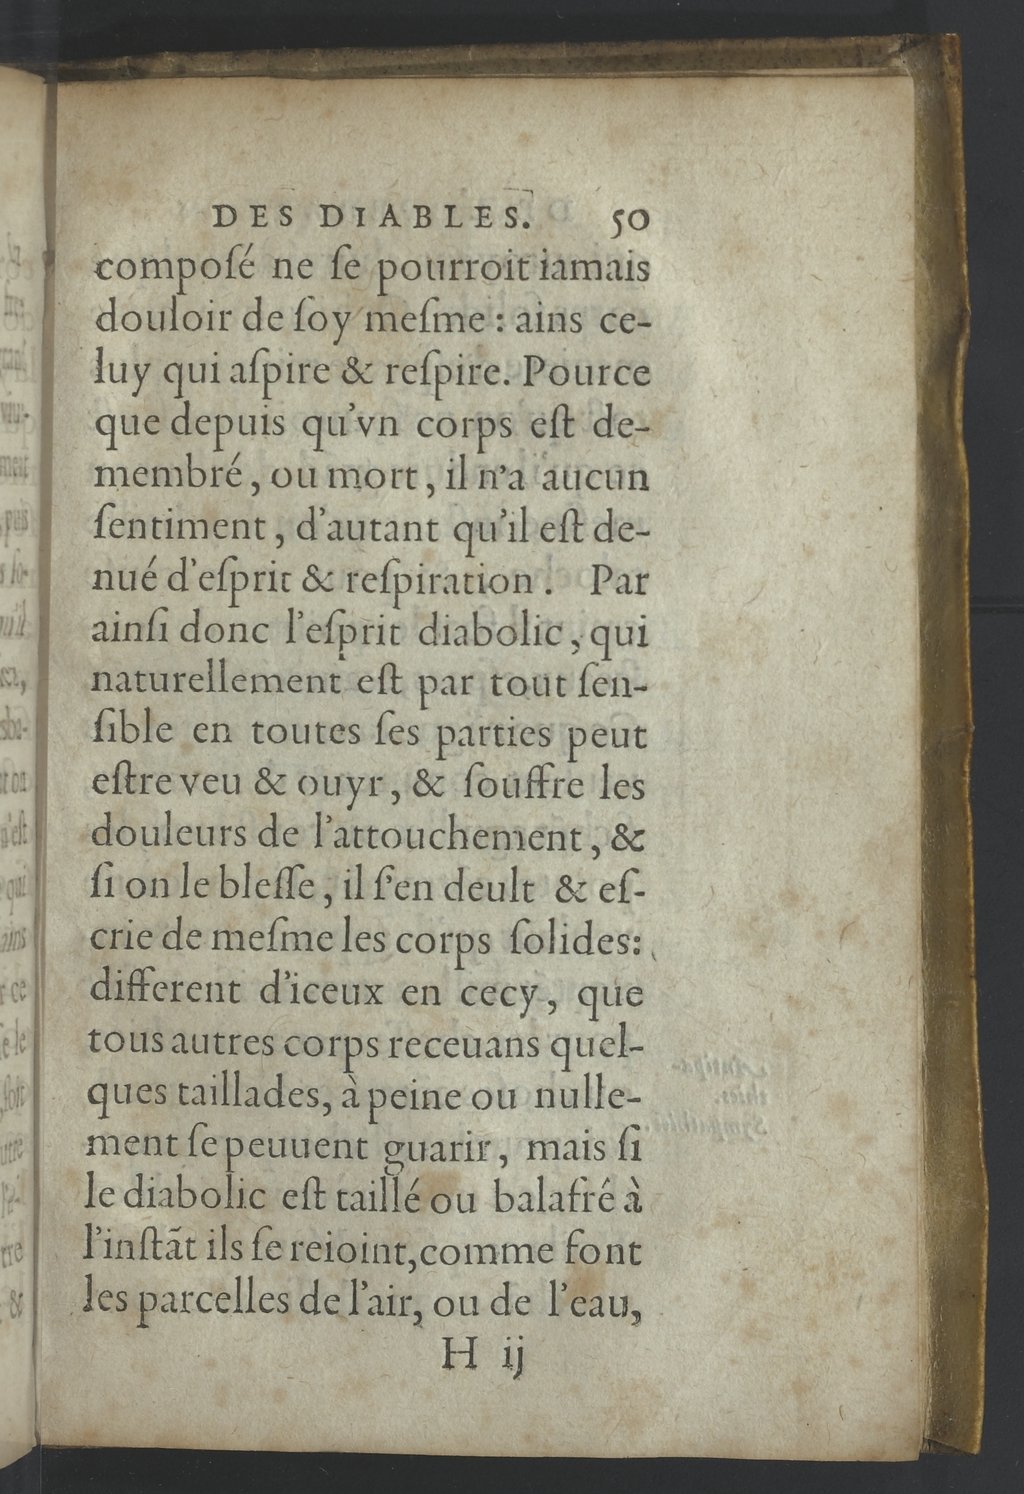 DES DIABLES. 50
compoſé ne ſe pourroit iamais
douloir de ſoy meſme : ains ce-
luy qui aſpire & reſpire. Pource
que depuis qu'vn corps eſt de-
membré, ou mort, il n'a aucun
ſentiment, d'autant qu'il eſt de-
nué d'eſprit & reſpiration. Par
ainſi donc l'eſprit diabolic, qui
naturellement eſt par tout ſen-
ſible en toutes ſes parties peut
eſtre veu & ouyr, & ſouffre les
douleurs de l'attouchement, &
ſi on le bleſſe, il ſ'en deult & eſ-
crie de meſme les corps ſolides:
different d'iceux en cecy, que
tous autres corps receuans quel-
ques taillades, à peine ou nulle-
ment ſe peuuent guarir, mais ſi
le diabolic eſt taillé ou balafré à
l'inſtãt ils ſe reioint, comme font
les parcelles de l'air, ou de l'eau,
H ij